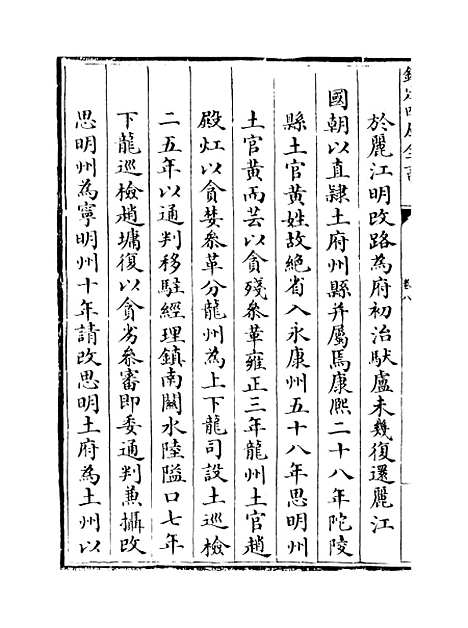 欽定四庫全書
卷八
於麗江明改路為府初治馱盧未幾復還麗江
國朝以直隸土府州縣并屬焉康熙二十八年陀陵
縣土官黃姓故絕省入永康州五十八年思明州
土官黃而芸以貪殘叅革雍正三年龍州土官趙
殿灴以貪婪叅革分龍州為上下龍司設土巡檢
二五年以通判移駐經理鎮南關水陸隘口七年
下龍巡檢趙墉復以貪劣叅審即委通判兼攝改
思明州為寧明州十年請改思明土府為土州以